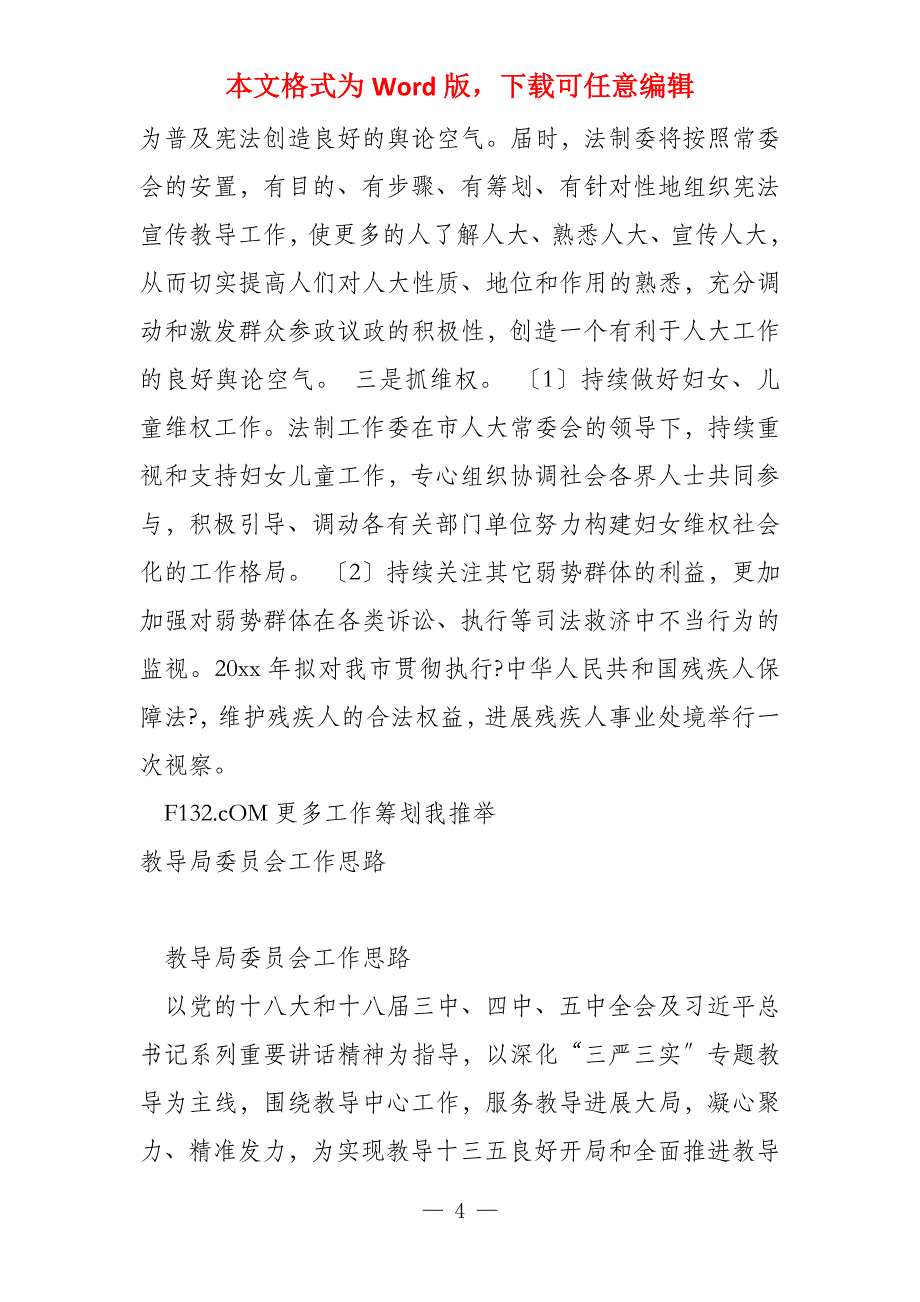 本文格式为 Word 版，下载可任意编辑
为普及宪法创造良好的舆论空气。届时，法制委将按照常委
会的安置，有目的、有步骤、有筹划、有针对性地组织宪法
宣传教导工作，使更多的人了解人大、熟悉人大、宣传人大，
从而切实提高人们对人大性质、地位和作用的熟悉，充分调
动和激发群众参政议政的积极性，创造一个有利于人大工作
的良好舆论空气。 三是抓维权。 〔1〕持续做好妇女、儿
童维权工作。法制工作委在市人大常委会的领导下，持续重
视和支持妇女儿童工作，专心组织协调社会各界人士共同参
与，积极引导、调动各有关部门单位努力构建妇女维权社会
化的工作格局。 〔2〕持续关注其它弱势群体的利益，更加
加强对弱势群体在各类诉讼、执行等司法救济中不当行为的
监视。20xx 年拟对我市贯彻执行?中华人民共和国残疾人保
障法?，维护残疾人的合法权益，进展残疾人事业处境举行一
次视察。
F132.cOM 更多工作筹划我推举
教导局委员会工作思路
教导局委员会工作思路
以党的十八大和十八届三中、四中、五中全会及习近平总
书记系列重要讲话精神为指导，以深化“三严三实〞专题教
导为主线，围绕教导中心工作，服务教导进展大局，凝心聚
力、精准发力，为实现教导十三五良好开局和全面推进教导
— 4 —